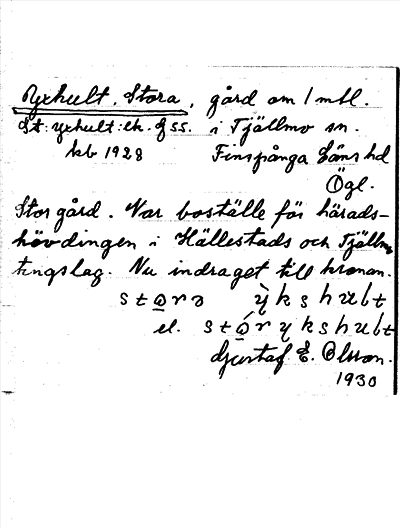 Yxhult, Stora, gård om 1 mtl.
St: yxhult: ek. g ss. i Tjällmo sn.
kb 1928 Finspånga läns hd
Ögl.
Stor gård. Var boställe för härads-
hövdingen i Hällestads och Tjällmo
tingslag. Nu indraget till kronan.
stọrə ỳkshult
el. stọ́rykshult
Gustaf E. Olsson.
1930